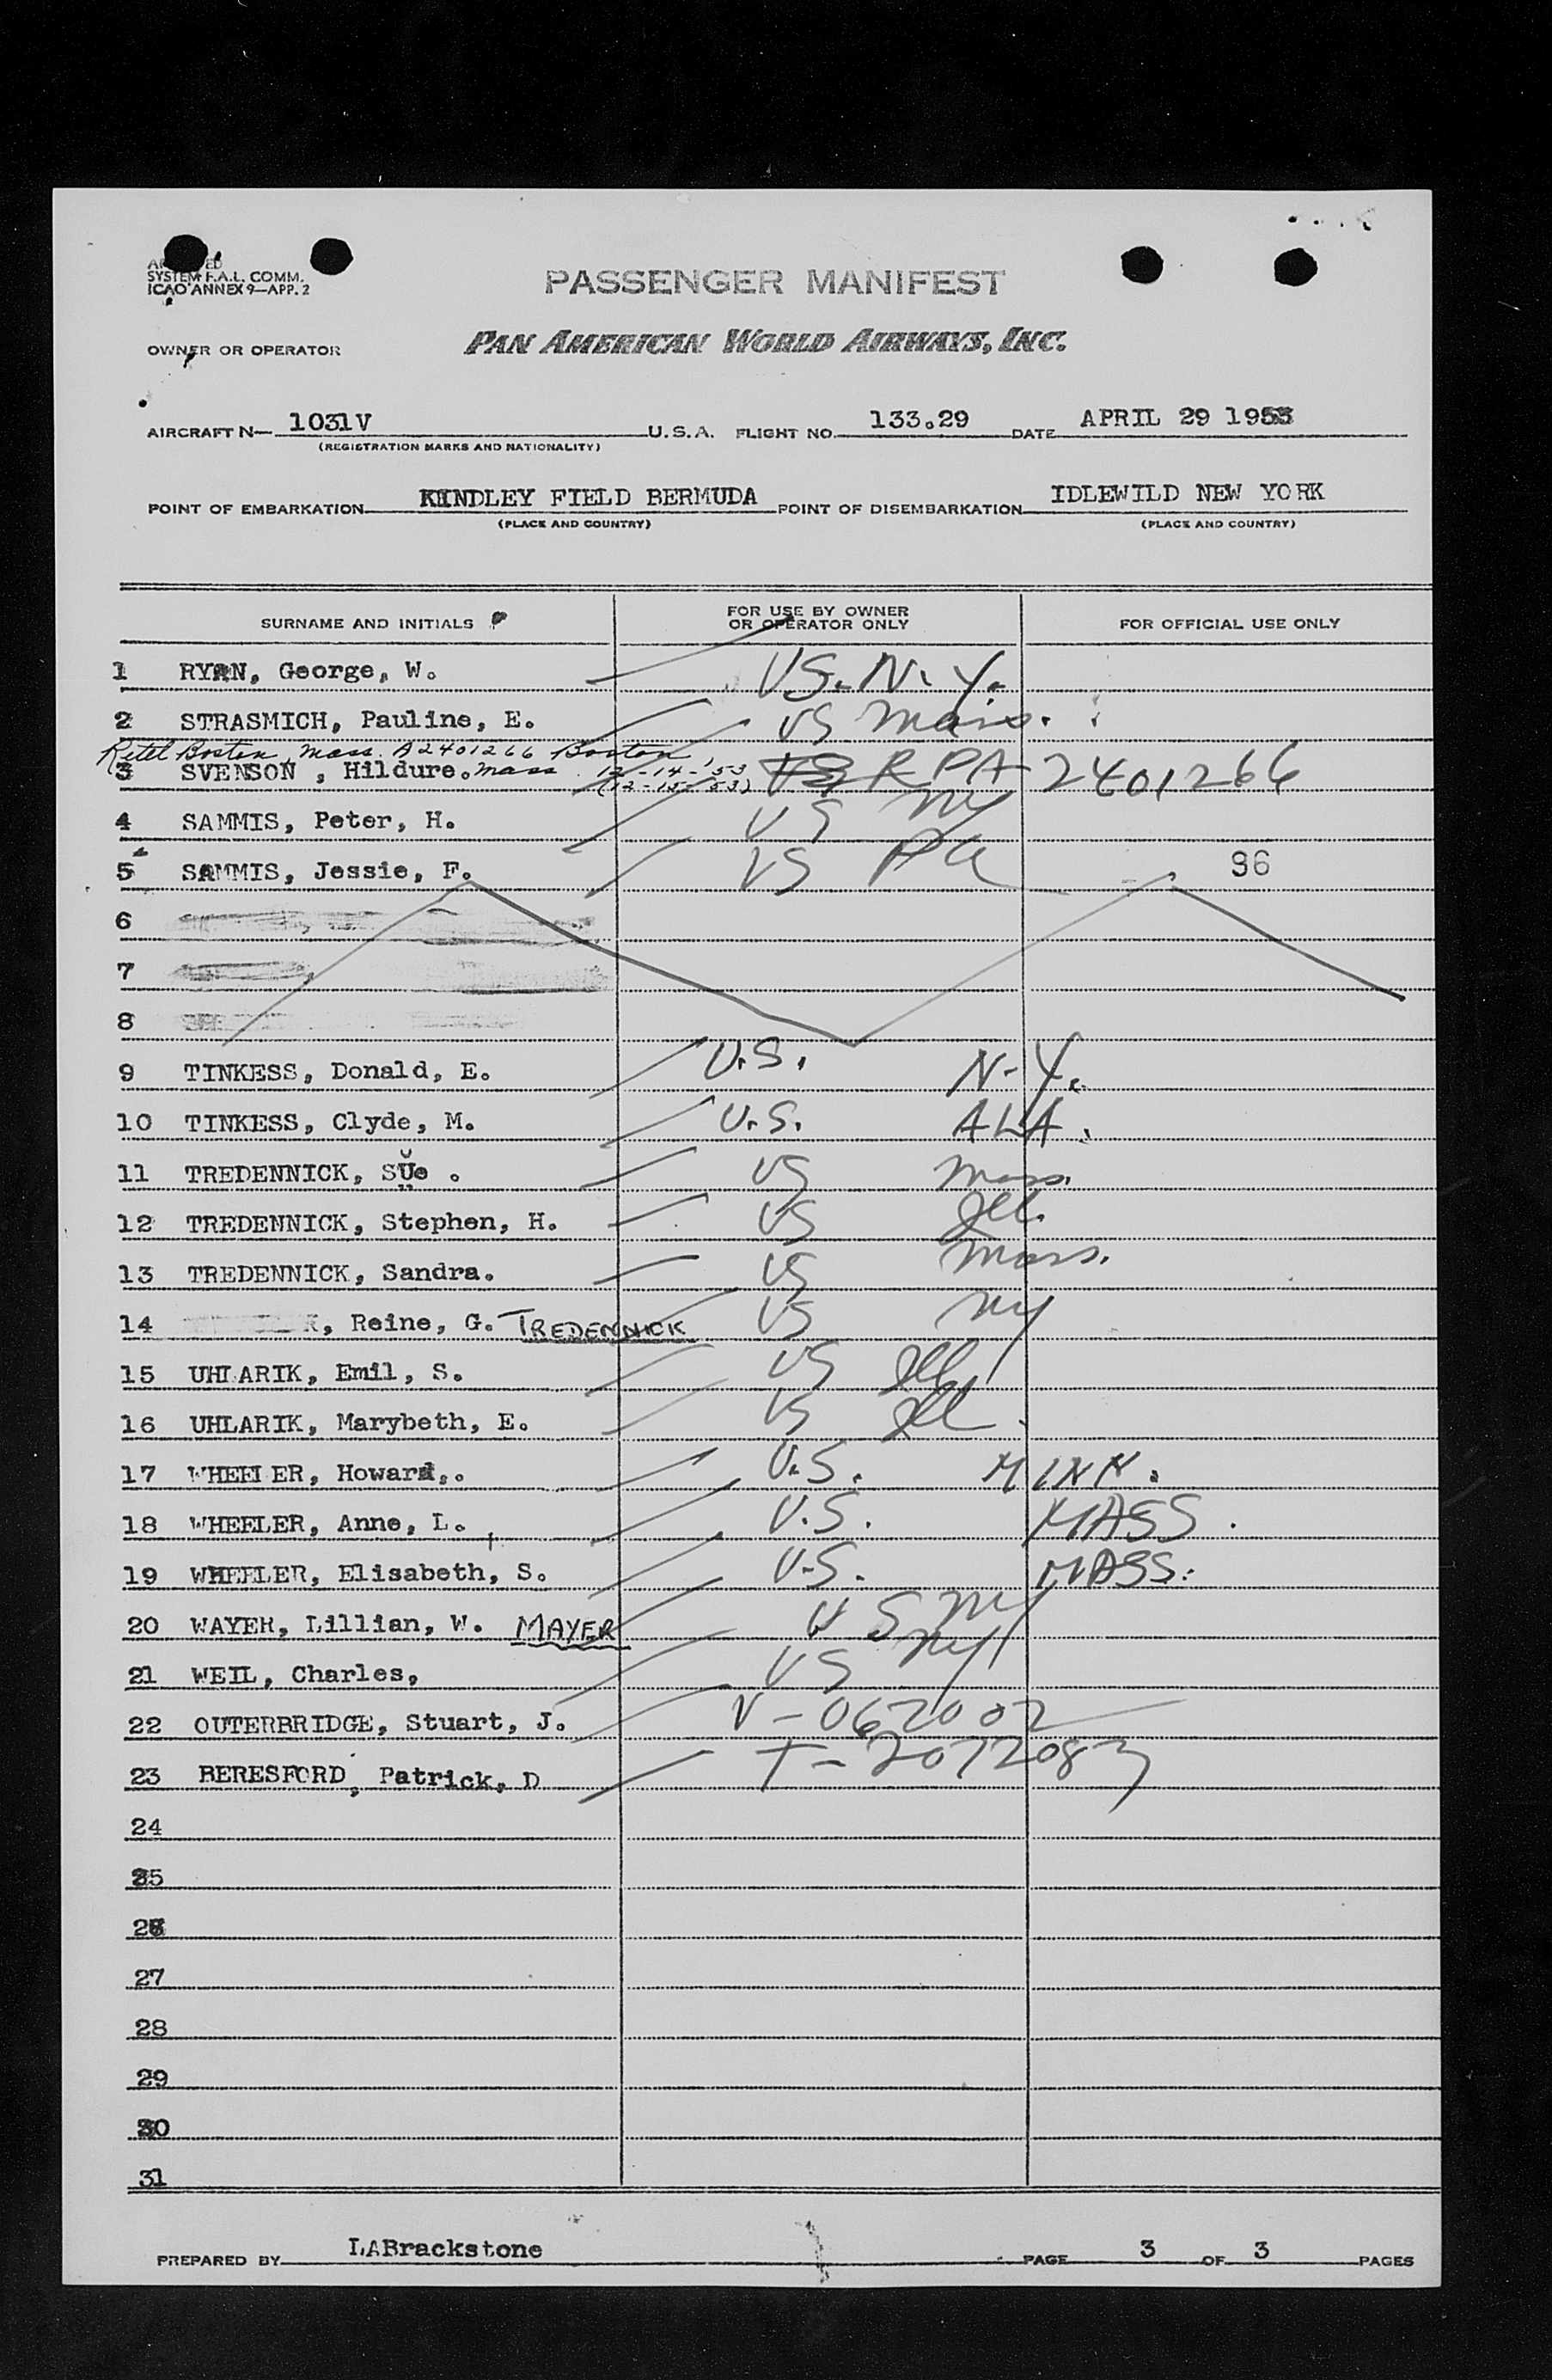 SYSTEM F.A.L. COMM.
ICAO ANNEX 9—APP. 2
PASSENGER MANIFEST
OWNER OR OPERATOR PAN AMERICAN WORLD AIRWAYS, INC.
AIRCRAFT N— 1031V U.S.A. FLIGHT NO. 133.29 DATE APRIL 29 1953
(REGISTRATION MARKS AND NATIONALITY)
POINT OF EMBARKATION KINDLEY FIELD BERMUDA POINT OF DISEMBARKATION IDLEWILD NEW YORK
(PLACE AND COUNTRY) (PLACE AND COUNTRY)
SURNAME AND INITIALS FOR USE BY OWNER OR OPERATOR ONLY FOR OFFICIAL USE ONLY
1 RYAN, George, W. US. N. Y.
2 STRASMICH, Pauline, E. US Mass.
Boston, Mass. A2401266 Boston
3 SVENSON , Hildure. Mass. 12-14-'53 US R PA 2401266
(12-15-'53)
4 SAMMIS, Peter, H. US NY
5 SAMMIS, Jessie, F. US Pa 96
6
7
8
9 TINKESS, Donald, E. U.S. N-Y.
10 TINKESS, Clyde, M. U.S. ALA.
11 TREDENNICK, SUe . US Mass.
12 TREDENNICK, Stephen, H. US Ill.
13 TREDENNICK, Sandra. US Mass.
14 , Reine, G. TREDENNICK US NY
15 UHLARIK, Emil, S. US Ill
16 UHLARIK, Marybeth, E. US Ill
17 WHEELER, Howard,. U.S. MINN.
18 WHEELER, Anne, L. U.S. MASS.
19 WHEELER, Elisabeth, S. U.S. MASS.
20 WAYER, Lillian, W. MAYER U S NY
21 WEIL, Charles, US NY
22 OUTERBRIDGE, Stuart, J. V-062002
23 BERESFORD, Patrick, D T-2072083
24
25
26
27
28
29
30
31
PREPARED BY LABrackstone PAGE 3 OF 3 PAGES